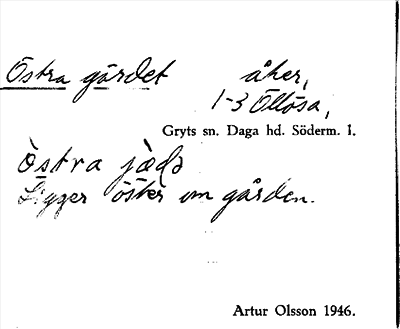 Östra gärdet åker,
1-3 Ölösa,
Gryts sn. Daga hd. Söderm. l.
östra
Ligger öster om gården.
Artur Olsson 1946.